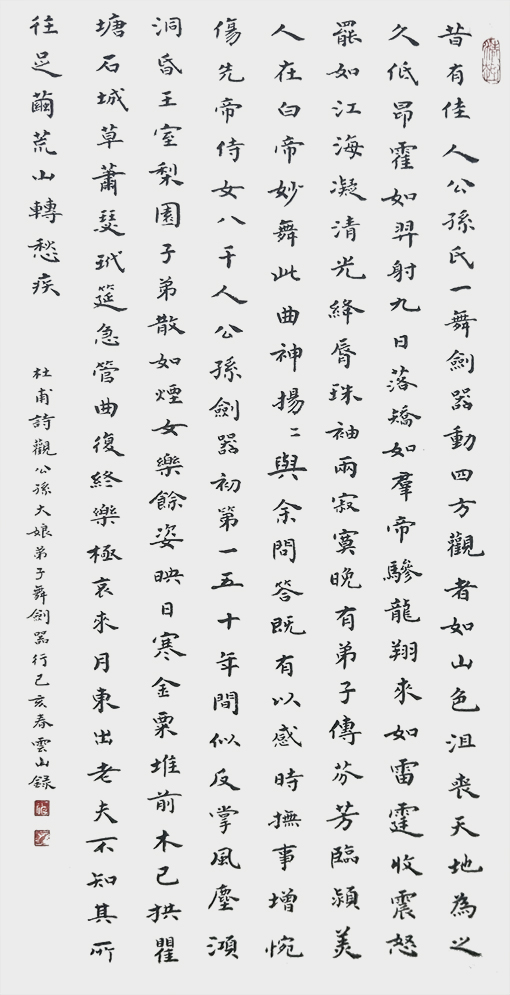 昔有佳人公孫氏一舞劍器動四方觀者如山色沮喪天地為之
久低昂霍如羿射九日落矯如羣帝驂龍翔來如雷霆收震怒
罷如江海凝清光絳脣珠袖兩寂寞晚有弟子傳芬芳臨潁美
人在白帝妙舞此曲神揚〻與余問答既有以感時撫事增惋
傷先帝侍女八千人公孫劍器初第一五十年間似反掌風塵澒
洞昏王室梨園子弟散如煙女樂餘姿映日寒金粟堆前木已拱瞿
塘石城草蕭瑟玳筵急管曲復終樂極哀來月東出老夫不知其所
往足繭荒山轉愁疾
杜甫詩觀公孫大娘弟子舞劍器行己亥春雲山錄